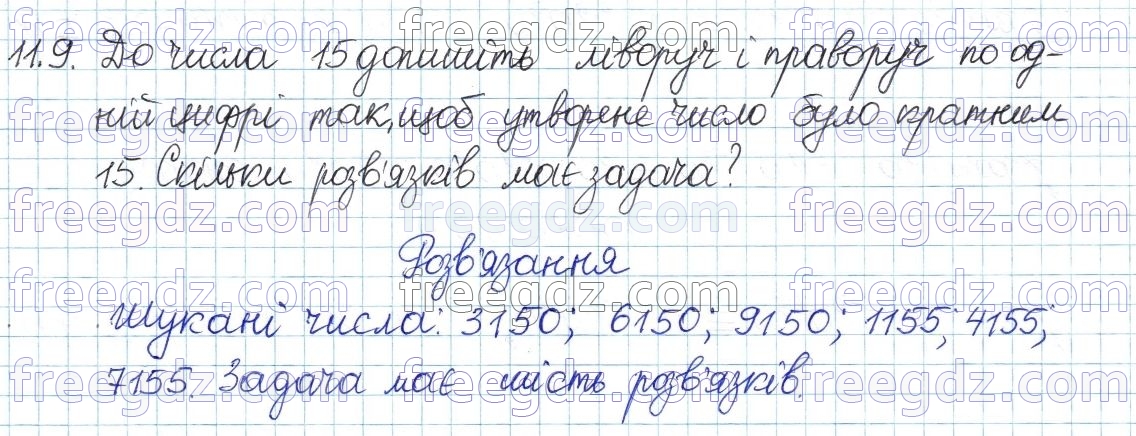 11.9. До числа 15 допишіть ліворуч і праворуч по од-
ній цифрі так, щоб утворене число було кратним
15. Скільки розв'язків має задача?
Розв'язання
Шукані числа: 3150; 6150; 9150; 1155; 4155;
7155. Задача має шість розв'язків.
freegdz.com